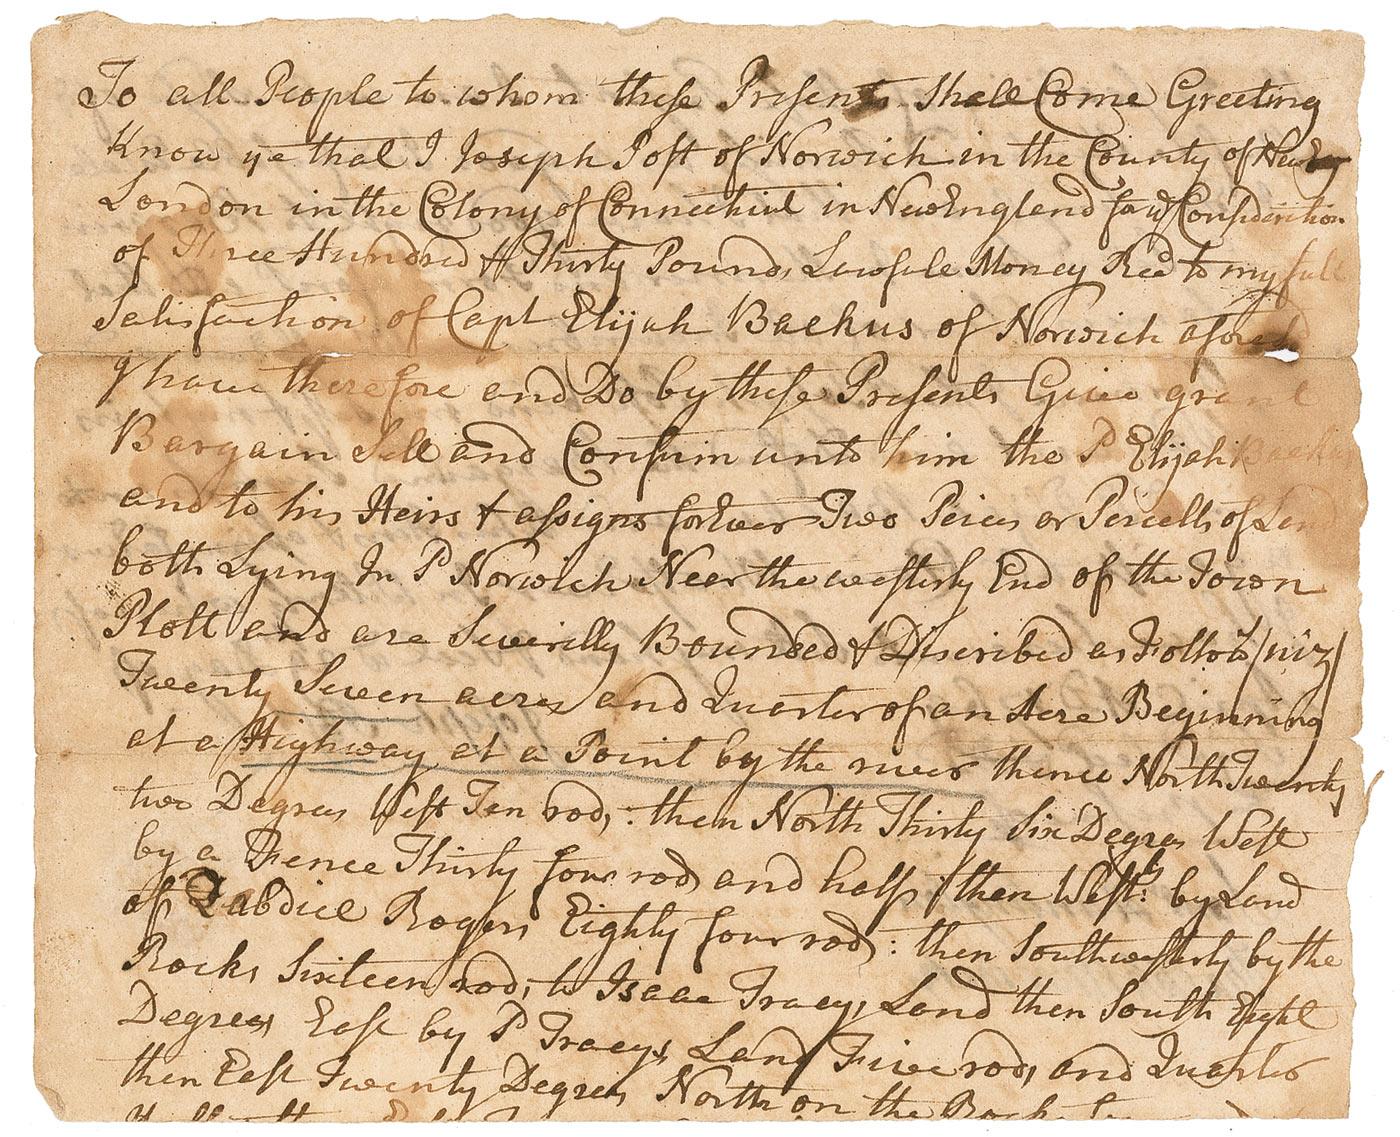 To all People to whom these Presents Shall Come Greeting
Know ye that I Joseph Post of Norwich in the County of New
London in the Colony of Connecticut in New England for ye Consideration
of Three Hundred & Thirty Pounds Lawfule Money Recd to my full
Satisfaction of Capt Elijah Backus of Norwich aforesd
I have therefore and Do by these Presents Give grant
Bargain Sell and Confirm unto him the sd Elijah Backus
and to his Heirs & assigns forEver Two Peices or Percells of Land
both Lying In sd Norwich Near the westerly End of the Town
Plott and are Severilly Bounded & Discribed as Follows /viz/
Twenty Seven acres and Quarter of an Acre Beginning
at a Highway at a Point by the river thence North Twenty
two Degrees West Ten rods : then North Thirty Six Degres West
by a Fence Thirty four rods and half then Westly by Land
of Zabdiel Rogers Eighty four rods : then Southwesterly by the
Rocks Sixteen rods to Isaac Tracys Land then South Eight
Degrees East by sd Tracys Land Five rods and Quarter
then East Twenty Degrees North on the